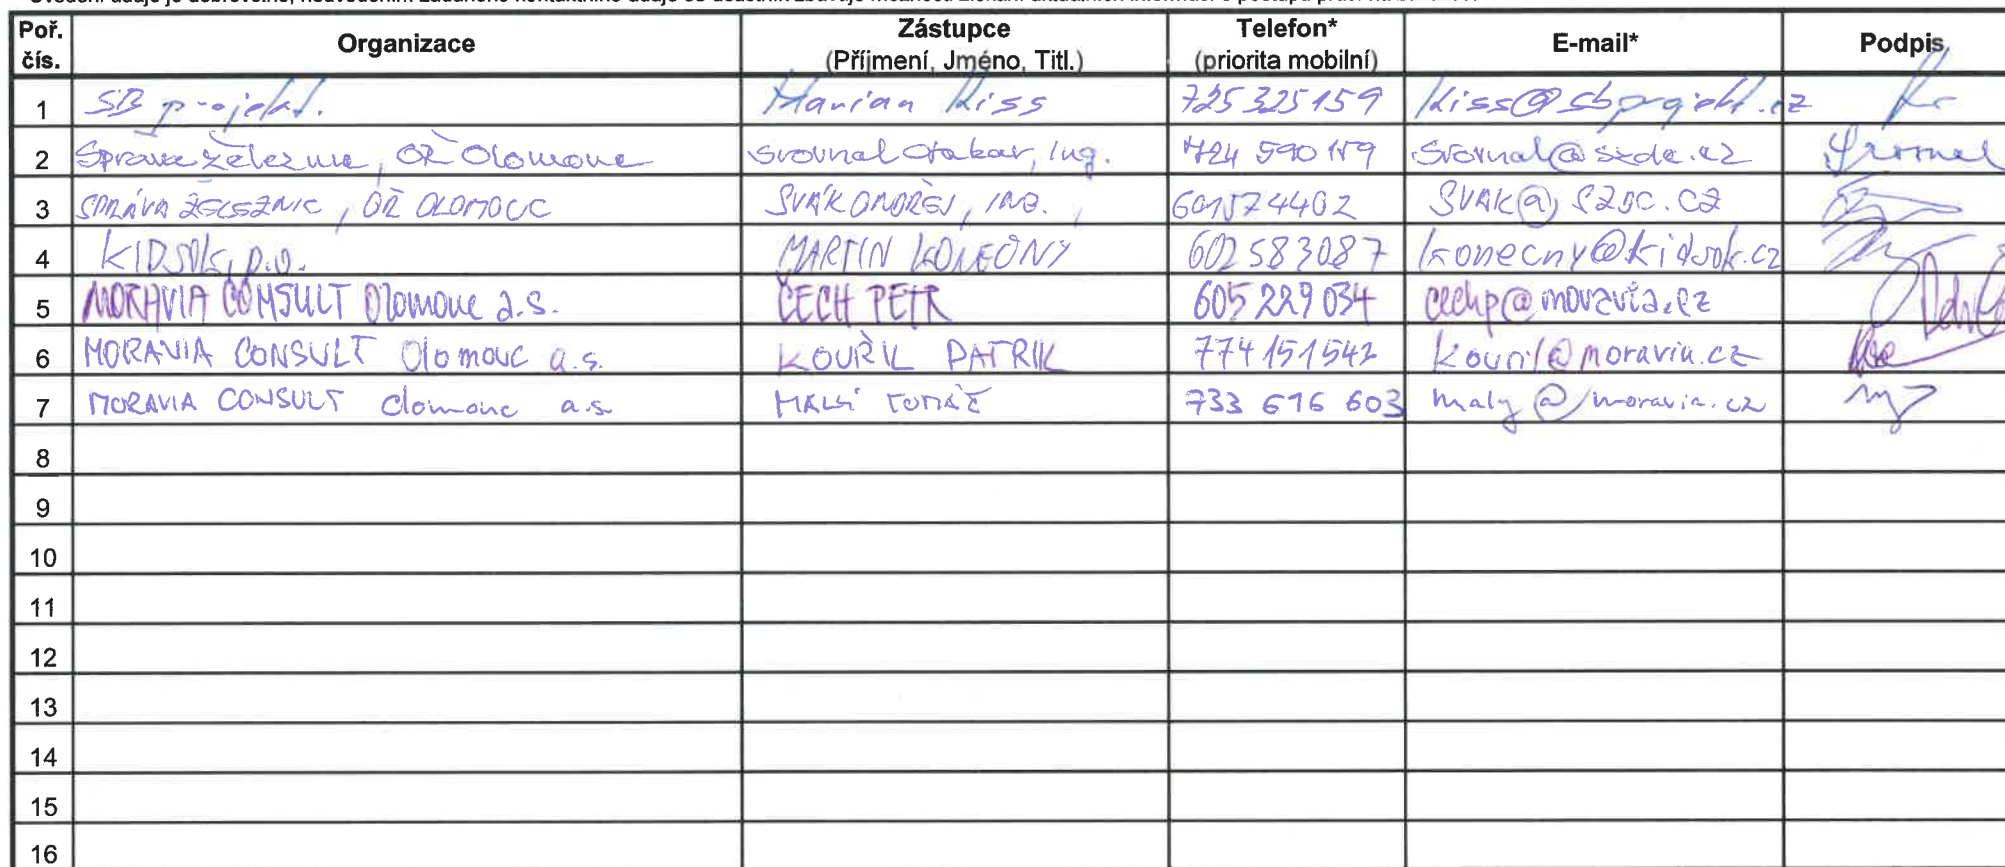 Poř. čís. Organizace Zástupce (Příjmení, Jméno, Titl.) Telefon* (priorita mobilní) E-mail* Podpis
1 SB projekt. Marian Kiss 725 325 159 kiss@sbprojekt.cz
2 Správa železnic, OŘ Olomouc Srovnal Otakar, Ing. 724 590 159 Srovnal@szdc.cz
3 SPRÁVA ŽELEZNIC, OŘ OLOMOUC SVÁK ONDŘEJ, ING. 601574402 SVAK@SZDC.CZ
4 KIDSOK, p.o. MARTIN KONEČNÝ 602 583087 konecny@kidsok.cz
5 MORAVIA CONSULT Olomouc a.s. ČECH PETR 605 229 034 cechp@moravia.cz
6 MORAVIA CONSULT Olomouc a.s. KOUŘIL PATRIK 774 151542 kouril@moravia.cz
7 MORAVIA CONSULT Olomouc a.s. MALÝ TOMÁŠ 733 616 603 maly@moravia.cz
8
9
10
11
12
13
14
15
16